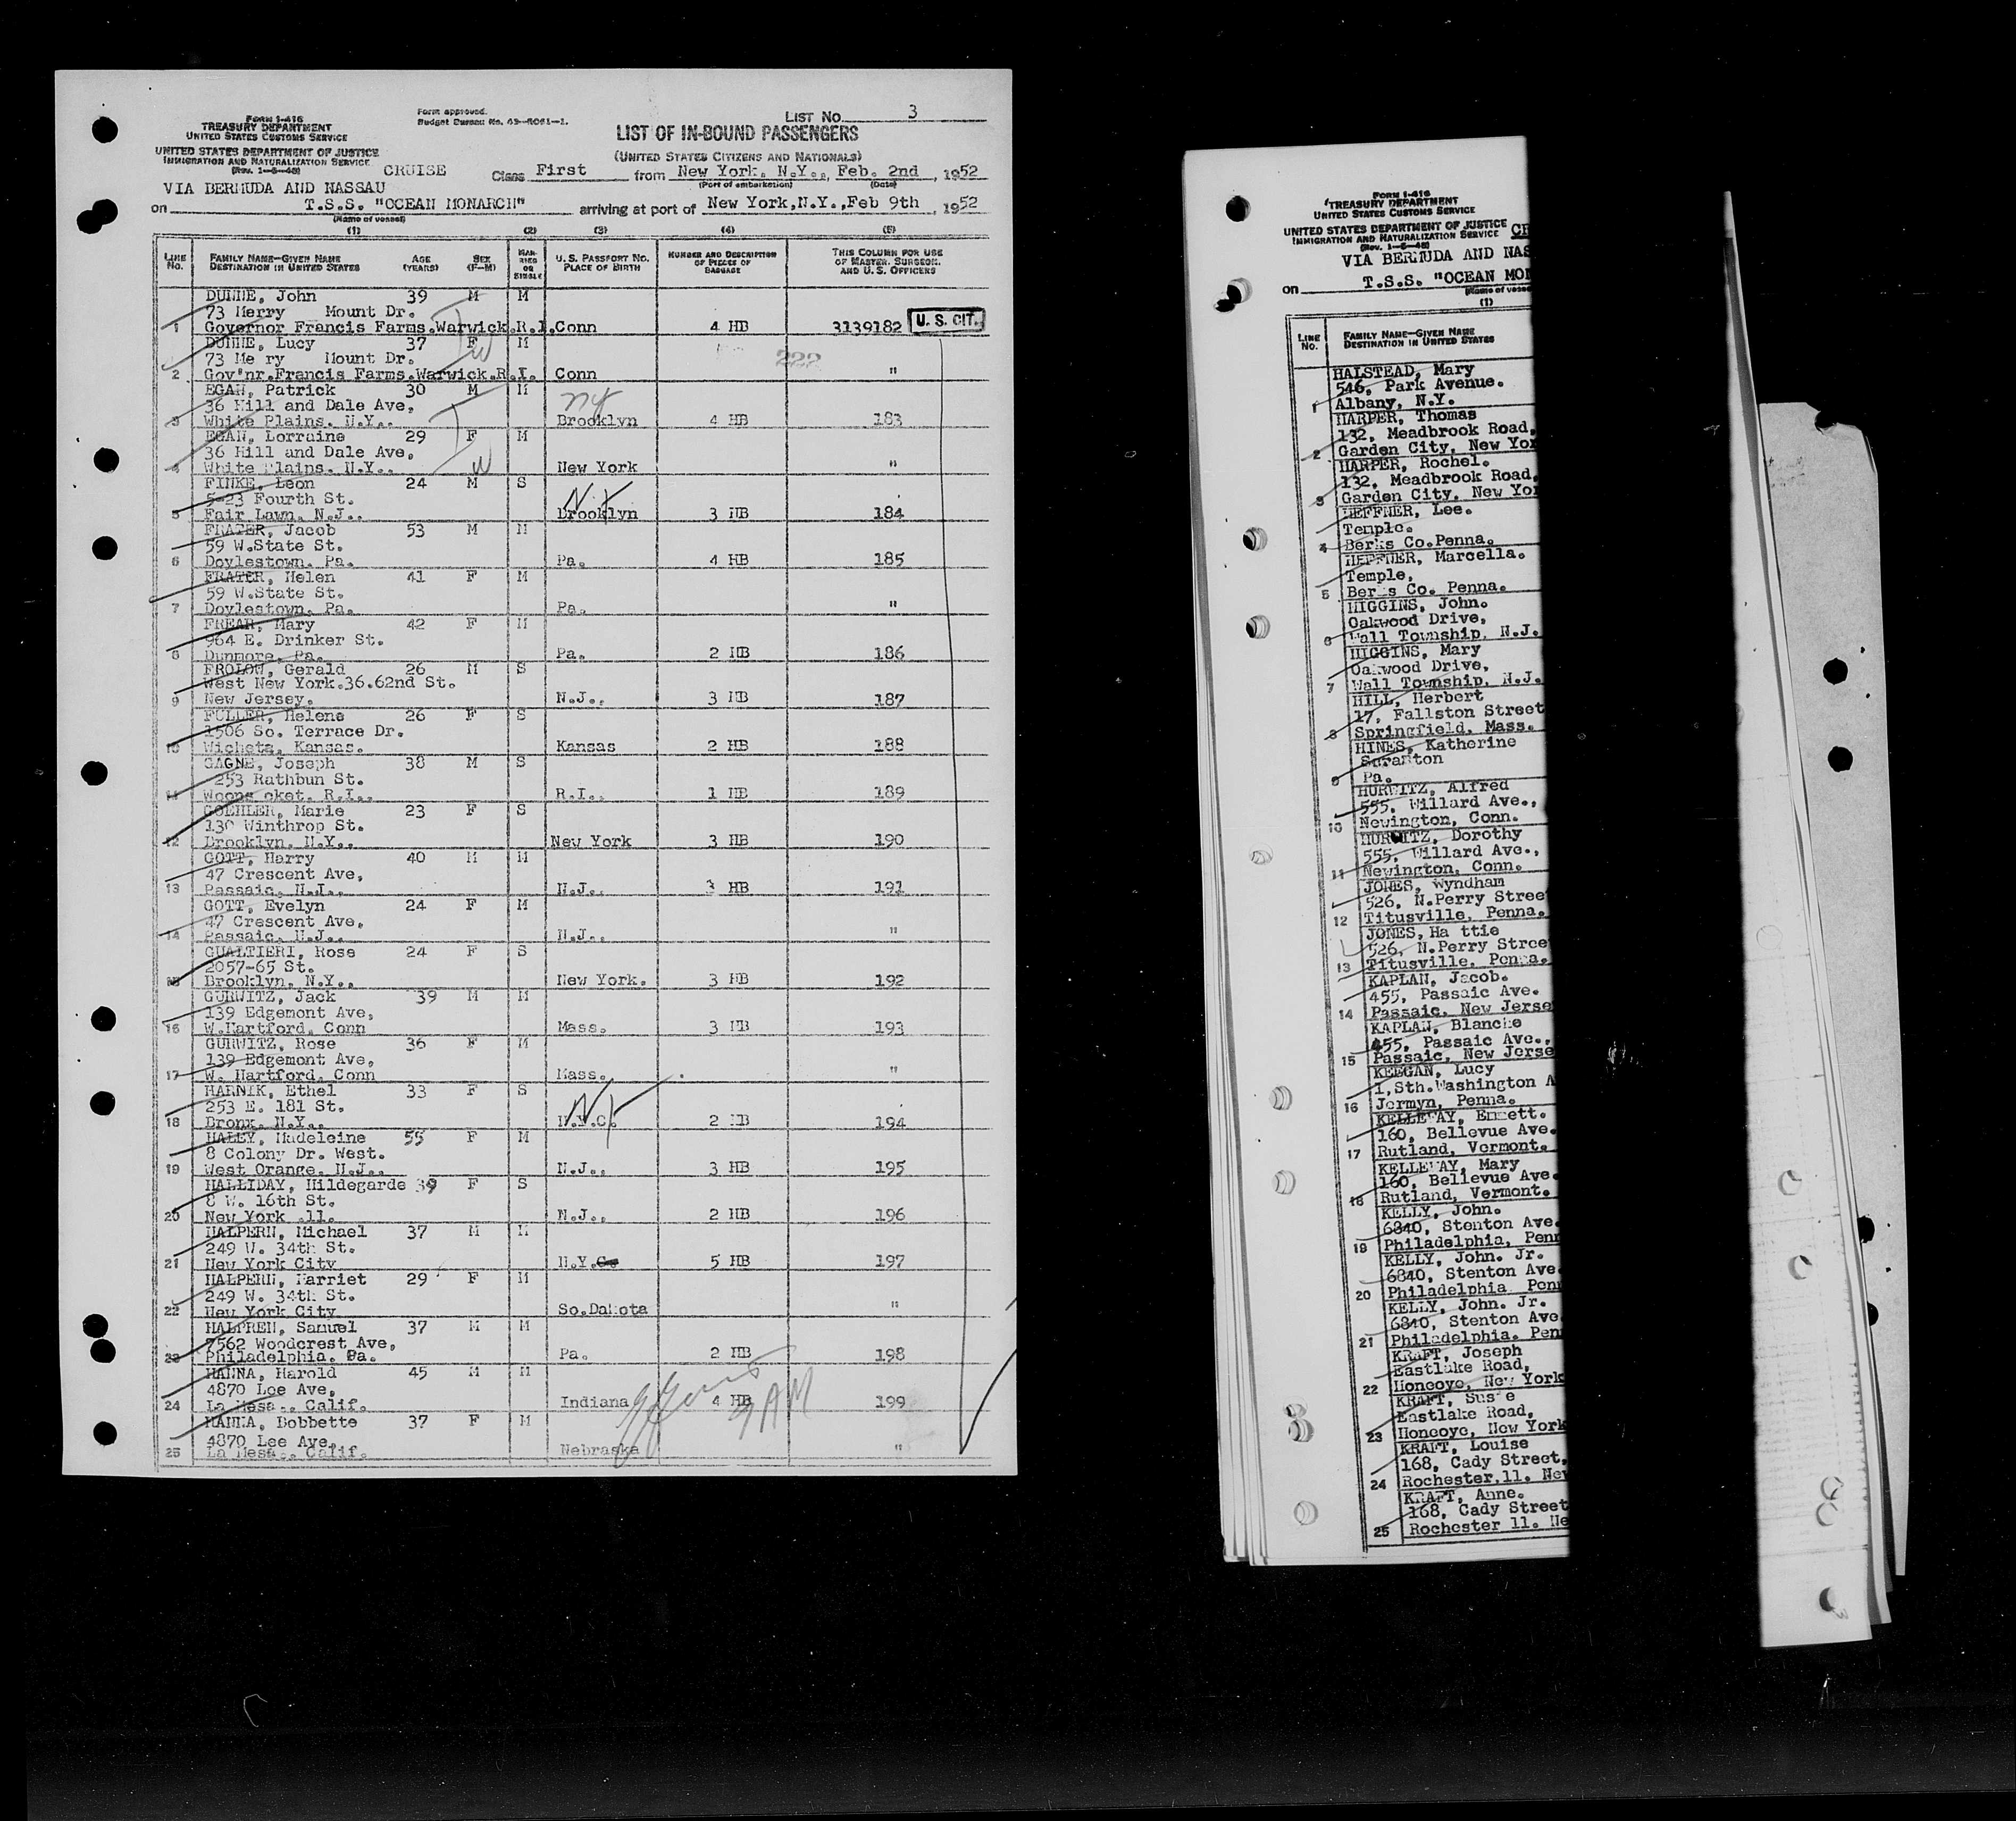 FORM I-416
TREASURY DEPARTMENT
UNITED STATES CUSTOMS SERVICE
UNITED STATES DEPARTMENT OF JUSTICE
IMMIGRATION AND NATURALIZATION SERVICE
Form approved.
LIST No. 3
LIST OF IN-BOUND PASSENGERS
(UNITED STATES CITIZENS AND NATIONALS)
CRUISE Class First from New York. N.Y., Feb. 2nd, 1952
(Port of embarkation) (Date)
VIA BERMUDA AND NASSAU
on T.S.S. "OCEAN MONARCH" arriving at port of New York,N.Y.,Feb 9th, 1952
(Name of vessel)
(1) (2) (3) (4) (5)
LINE No. FAMILY NAME—GIVEN NAME DESTINATION IN UNITED STATES AGE (YEARS) SEX (F—M) MARRIED OR SINGLE U.S. PASSPORT No. PLACE OF BIRTH NUMBER AND DESCRIPTION OF PIECES OF BAGGAGE THIS COLUMN FOR USE OF MASTER, SURGEON, AND U. S. OFFICERS
DUNNE, John 39 M M
73 Merry Mount Dr.
1 Governor Francis Farms.Warwick.R.I. Conn 4 HB 3139182 U. S. CIT.
DUNNE, Lucy 37 F M
73 Me ry Mount Dr. 222
2 Gov'nr.Francis Farms.Warwick.R.I. Conn "
EGAN, Patrick 30 M M
36 Hill and Dale Ave, NY
3 White Plains. N.Y.. Brooklyn 4 HB 183
EGAN, Lorraine 29 F M
36 Hill and Dale Ave,
4 White Plains. N.Y.. New York "
FINKE, Leon 24 M S
5-23 Fourth St.
5 Fair Lawn. N.J.. Brooklyn 3 HB 184
FRATER, Jacob 53 M M
59 W.State St.
6 Doylestown. Pa. Pa. 4 HB 185
FRATER, Helen 41 F M
59 W.State St.
7 Doylestown. Pa. Pa. "
FREAR, Mary 42 F M
964 E. Drinker St.
8 Dunmore. Pa. Pa. 2 HB 186
FROLOW, Gerald 26 M S
West New York.36.62nd St.
9 New Jersey. N.J.. 3 HB 187
FULLER, Helene 26 F S
1506 So. Terrace Dr.
10 Wicheta, Kansas. Kansas 2 HB 188
GAGNE, Joseph 38 M S
253 Rathbun St.
11 Woons oket. R.I.. R.I.. 1 HB 189
GOEHLER, Marie 23 F S
130 Winthrop St.
12 Brooklyn. N.Y.. New York 3 HB 190
GOTT, Harry 40 M M
47 Crescent Ave,
13 Passaic. N.J.. N.J.. 3 HB 191
GOTT, Evelyn 24 F M
47 Crescent Ave,
14 Passaic. N.J.. N.J.. "
GUALTIERI, Rose 24 F S
2057-65 St.
15 Brooklyn. N.Y.. New York. 3 HB 192
GURWITZ, Jack 39 M M
139 Edgemont Ave,
16 W.Hartford. Conn Mass. 3 HB 193
GURWITZ, Rose 36 F M
139 Edgemont Ave,
17 W. Hartford. Conn Mass. "
HARNIK, Ethel 33 F S
253 E. 181 St.
18 Bronx. N.Y.. N.Y.C. 2 HB 194
HALEY, Madeleine 55 F M
8 Colony Dr. West.
19 West Orange. N.J.. N.J.. 3 HB 195
HALLIDAY, Hildegarde 39 F S
8 W. 16th St.
20 New York .11. N.J.. 2 HB 196
HALPERN, Michael 37 M M
249 W. 34th St.
21 New York City N.Y. 5 HB 197
HALPERN, Harriet 29 F M
249 W. 34th St.
22 New York City So.Dakota "
HALPREN, Samuel 37 M M
7562 Woodcrest Ave,
23 Philadelphia. Pa. Pa. 2 HB 198
HANNA, Harold 45 M M
4870 Lee Ave,
24 La Mesa.. Calif. Indiana 4 HB 199
9 AM
HANNA, Bobbette 37 F M
4870 Lee Ave,
25 La Mesa.. Calif. Nebraska "
FORM I-416
TREASURY DEPARTMENT
UNITED STATES CUSTOMS SERVICE
UNITED STATES DEPARTMENT OF JUSTICE
IMMIGRATION AND NATURALIZATION SERVICE
VIA BERMUDA AND NAS
on T.S.S. "OCEAN MO
(1)
LINE No. FAMILY NAME—GIVEN NAME DESTINATION IN UNITED STATES
HALSTEAD, Mary
546, Park Avenue.
1 Albany, N.Y.
HARPER, Thomas
132, Meadbrook Road,
2 Garden City, New Yor
HARPER, Rochel.
132, Meadbrook Road,
3 Garden City, New Yor
HEFFNER, Lee.
Temple.
4 Berks Co.Penna.
HEFFNER, Marcella.
Temple,
5 Berks Co. Penna.
HIGGINS, John.
Oakwood Drive,
6 Wall Township. N.J.
HIGGINS, Mary
Oakwood Drive,
7 Wall Township. N.J.
HILL, Herbert
17, Fallston Street
8 Springfield. Mass.
HINES, Katherine
Scranton
9 Pa.
HURWITZ, Alfred
555, Willard Ave.,
10 Newington, Conn.
HURWITZ, Dorothy
555, Willard Ave.,
11 Newington, Conn.
JONES, Wyndham
526, N.Perry Stree
12 Titusville. Penna.
JONES, Ha ttie
526, N.Perry Stree
13 Titusville. Penna.
KAPLAN, Jacob.
455, Passaic Ave.
14 Passaic, New Jerse
KAPLAN, Blanche
455, Passaic Ave.,
15 Passaic, New Jerse
KEEGAN, Lucy
1,Sth.Washington A
16 Jermyn, Penna.
KELLEWAY, Emmett.
160, Bellevue Ave.
17 Rutland, Vermont.
KELLEWAY, Mary
160, Bellevue Ave.
18 Rutland, Vermont.
KELLY, John.
6840, Stenton Ave.
19 Philadelphia, Penn
KELLY, John. Jr.
6840, Stenton Ave
20 Philadelphia Penn
KELLY, John. Jr.
6840, Stenton Ave
21 Philadelphia. Pen
KRAFT, Joseph
Eastlake Road,
22 Honeoye, New York
KRAFT, Susie
Eastlake Road,
23 Honeoye, New York
KRAFT, Louise
168, Cady Street,
24 Rochester.11. New
KRAFT, Anne.
168, Cady Street
25 Rochester 11. Ne